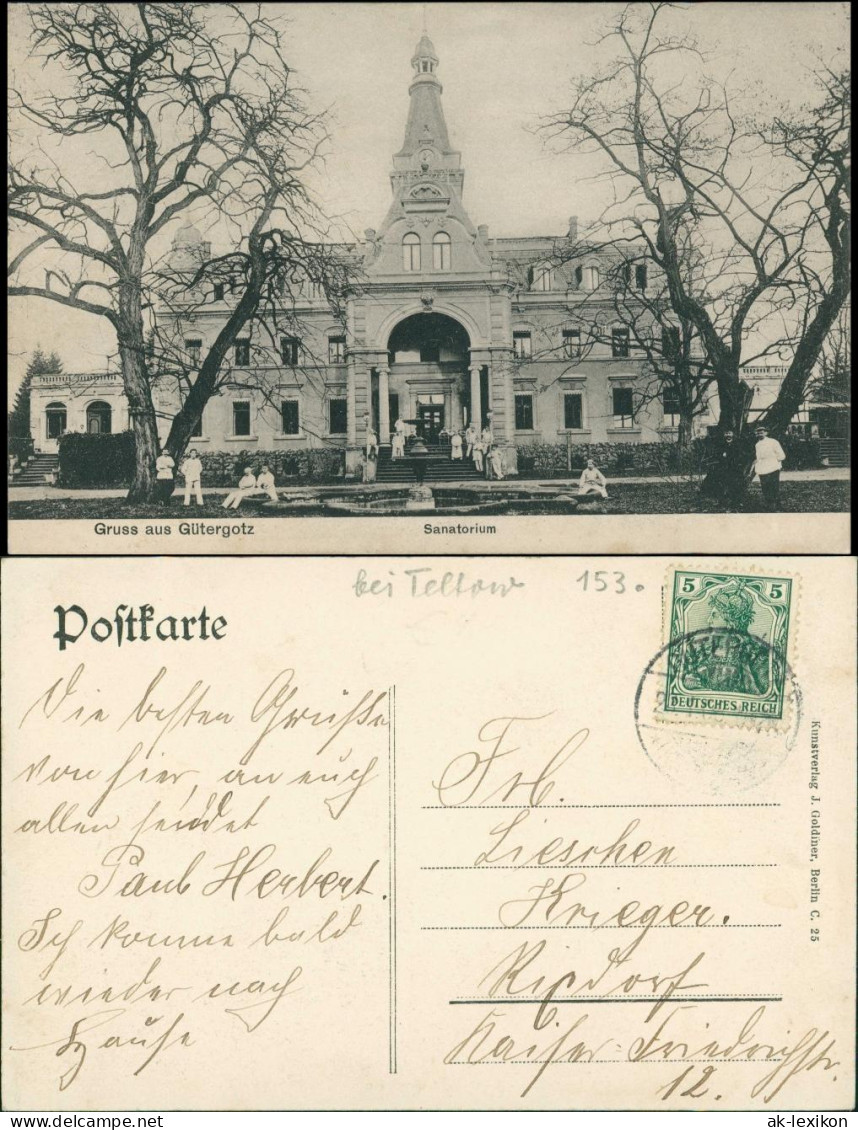 Gruss aus Gütergotz
Sanatorium
bei Teltow 153.
Postkarte
5 5
DEUTSCHES REICH
Die besten Grüße
von hier, an euch
allen sendet
Paul Herbert.
Ich komme bald
wieder nach
Hause
Frl.
Lieschen
Krieger.
Rixdorf
Kaiser-Friedrichstr.
12.
Kunstverlag J. Goldiner, Berlin C. 25
ak-lexikon